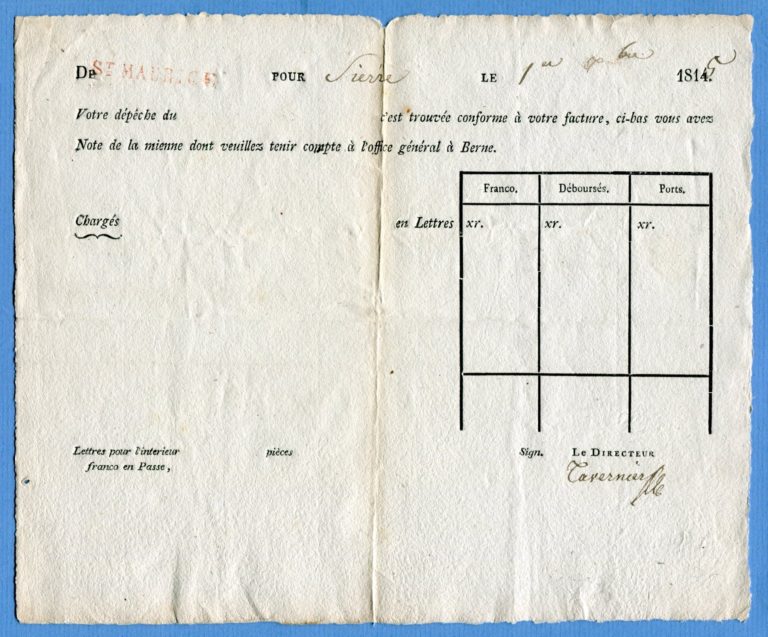 De ST MAURICE POUR Sierre LE 1er 1814
Votre dépêche du c'est trouvée conforme à votre facture, ci-bas vous avez
Note de la mienne dont veuillez tenir compte à l'office général à Berne.
Franco. Déboursés. Ports.
Chargés en Lettres xr. xr. xr.
Lettres pour l'interieur pièces Sign. LE DIRECTEUR
franco en Passe, Tavernier